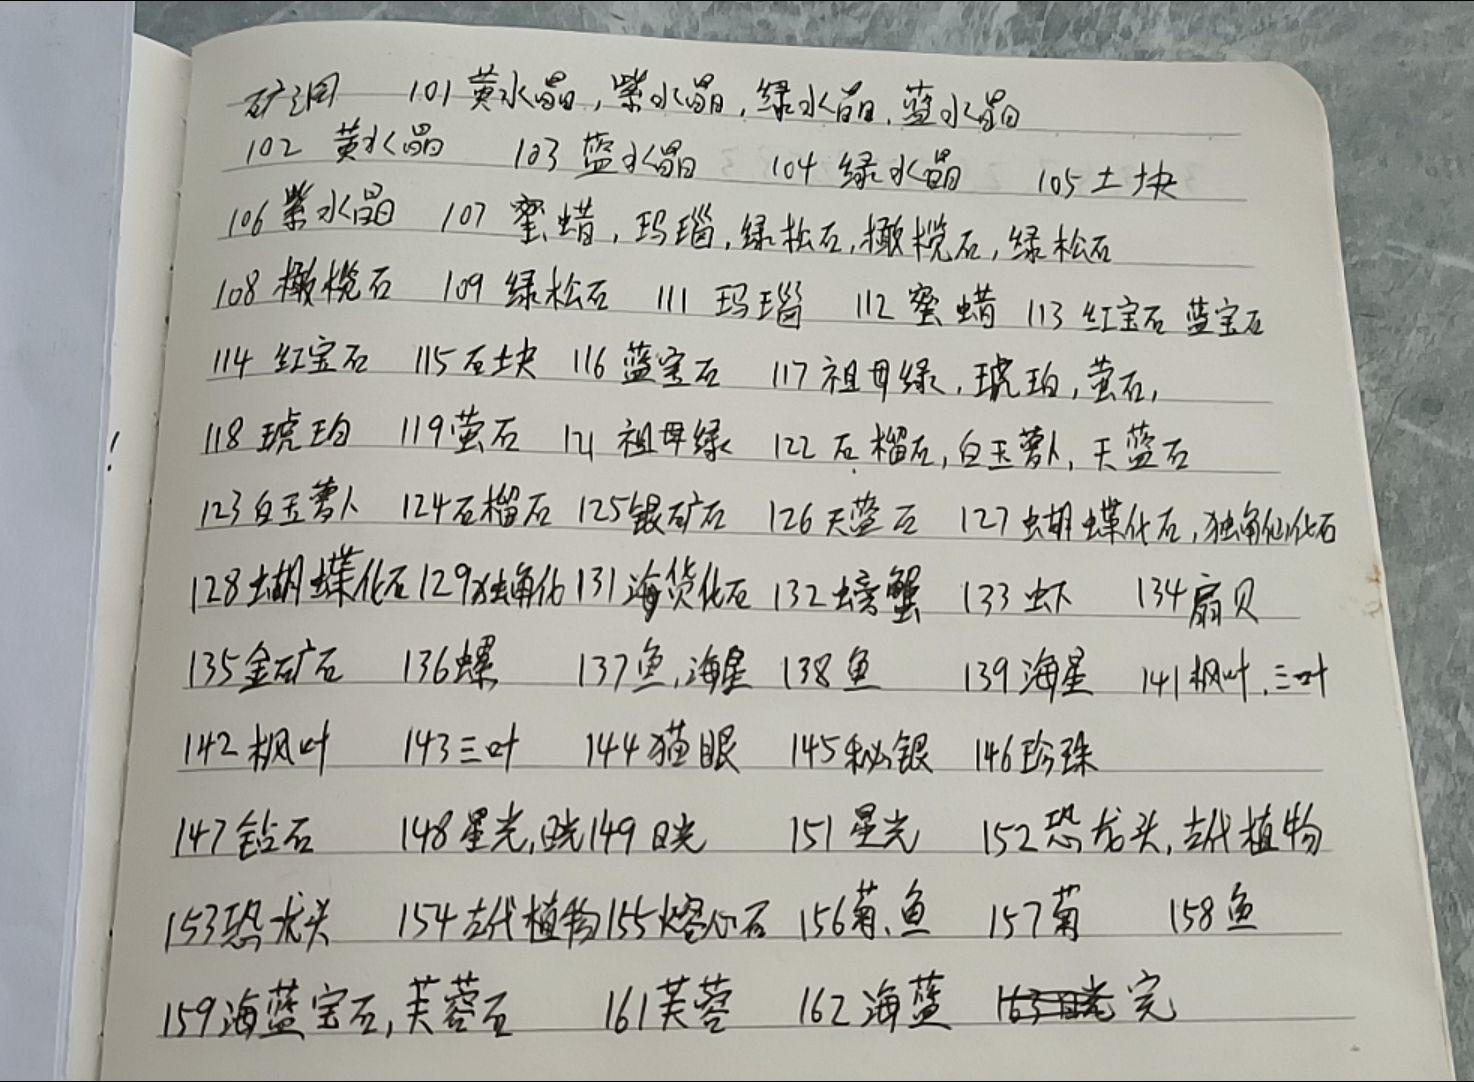 矿洞 101 黄水晶,紫水晶,绿水晶,蓝水晶
102 黄水晶 103 蓝水晶 104 绿水晶 105 土块
106 紫水晶 107 蜜蜡,玛瑙,绿松石,橄榄石,绿松石
108 橄榄石 109 绿松石 111 玛瑙 112 蜜蜡 113 红宝石 蓝宝石
114 红宝石 115 石块 116 蓝宝石 117 祖母绿,琥珀,萤石,
118 琥珀 119 萤石 121 祖母绿 122 石榴石,白玉萝卜,天蓝石
123 白玉萝卜 124 石榴石 125 银矿石 126 天蓝石 127 蝴蝶化石,独角仙化石
128 蝴蝶化石 129 独角化 131 海货化石 132 螃蟹 133 虾 134 扇贝
135 金矿石 136 螺 137 鱼,海星 138 鱼 139 海星 141 枫叶,三叶
142 枫叶 143 三叶 144 猫眼 145 秘银 146 珍珠
147 钻石 148 星光,日光 149 日光 151 星光 152 恐龙头,古代植物
153 恐龙头 154 古代植物 155 熔心石 156 菊、鱼 157 菊 158 鱼
159 海蓝宝石,芙蓉石 161 芙蓉 162 海蓝 完
!